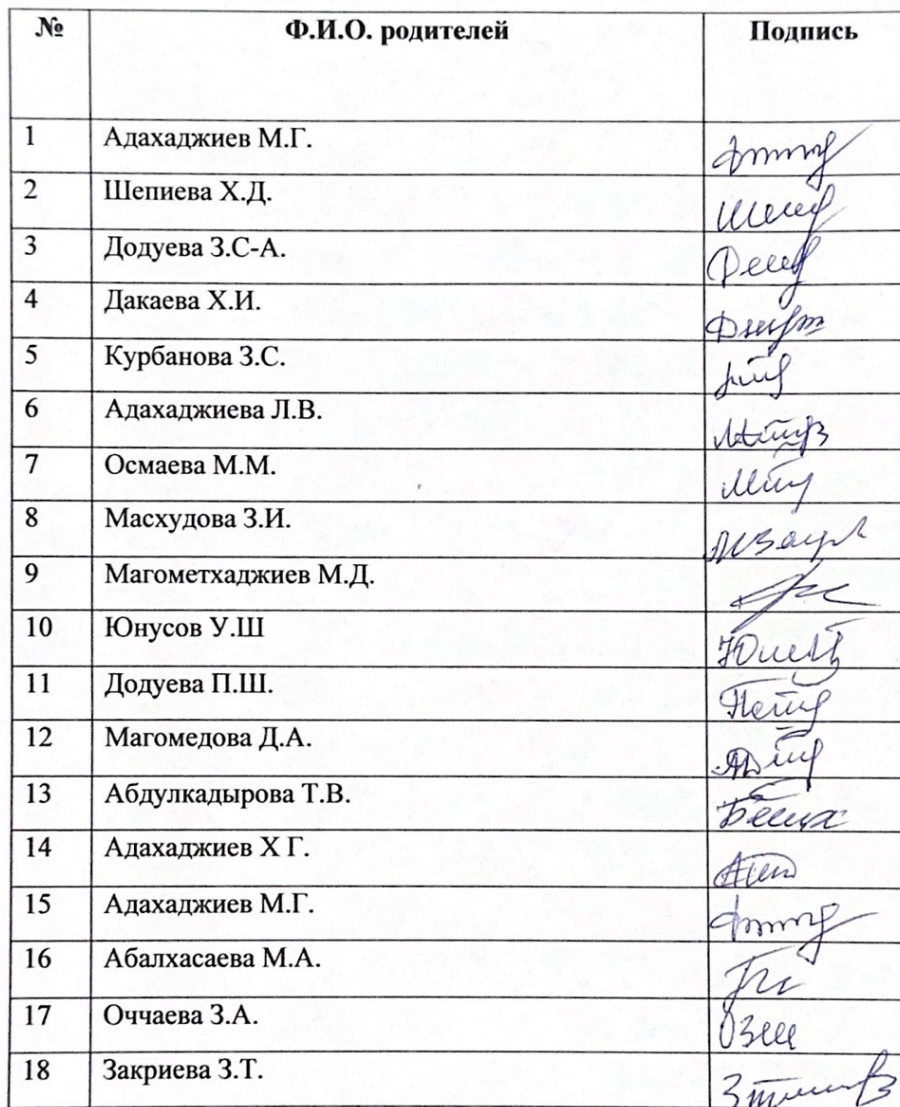 № Ф.И.О. родителей Подпись
1 Адахаджиев М.Г.
2 Шепиева Х.Д.
3 Додуева З.С-А.
4 Дакаева Х.И.
5 Курбанова З.С.
6 Адахаджиева Л.В.
7 Осмаева М.М.
8 Масхудова З.И.
9 Магометхаджиев М.Д.
10 Юнусов У.Ш
11 Додуева П.Ш.
12 Магомедова Д.А.
13 Абдулкадырова Т.В.
14 Адахаджиев Х Г.
15 Адахаджиев М.Г.
16 Абалхасаева М.А.
17 Оччаева З.А.
18 Закриева З.Т.